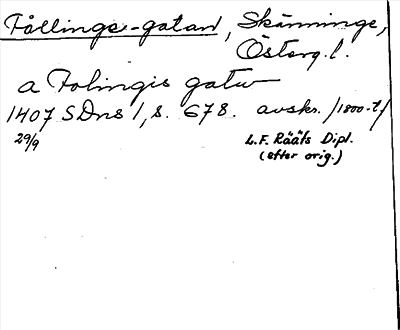 Fållinge-gatan, Skänninge,
Österg. l.
a Folingis gatw
1407 SDns 1, s. 678. avskr. /1800-t/
29/9 L.F. Rääfs Dipl.
(efter orig.)